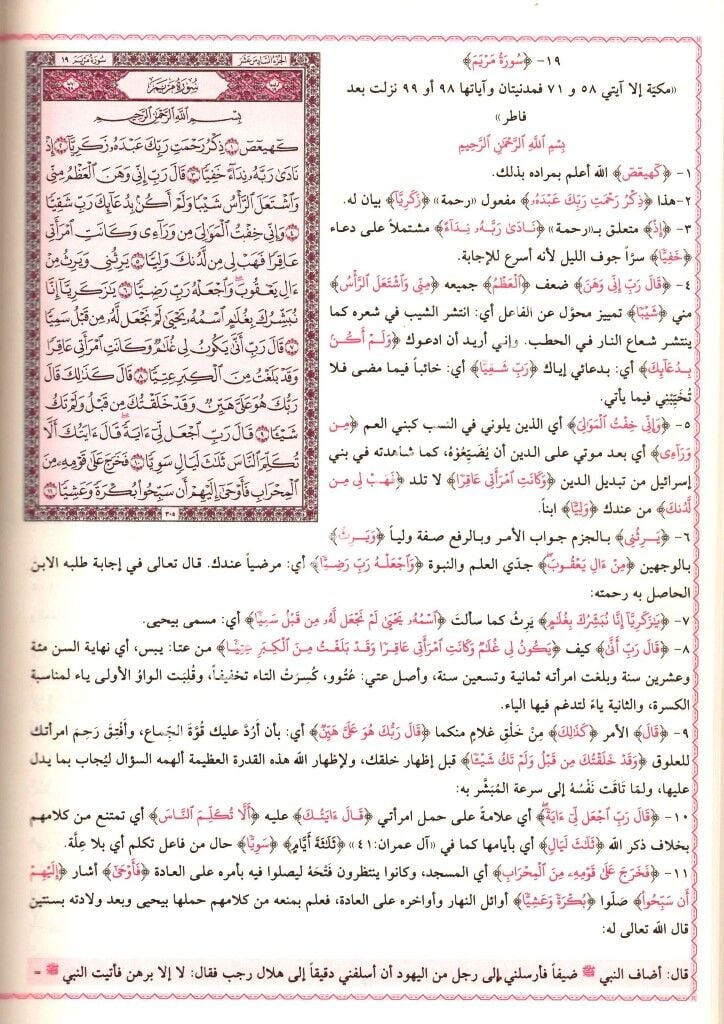 سُورَةُ مَرْيَم ١٩
الجزء السادس عشر
سُورَةُ مَرْيَم
بِسْمِ اللَّهِ الرَّحْمَٰنِ الرَّحِيمِ
كٓهيعٓصٓ ﴿١﴾ ذِكْرُ رَحْمَتِ رَبِّكَ عَبْدَهُۥ زَكَرِيَّآ ﴿٢﴾ إِذْ
نَادَىٰ رَبَّهُۥ نِدَآءً خَفِيًّا ﴿٣﴾ قَالَ رَبِّ إِنِّى وَهَنَ ٱلْعَظْمُ مِنِّى
وَٱشْتَعَلَ ٱلرَّأْسُ شَيْبًا وَلَمْ أَكُنۢ بِدُعَآئِكَ رَبِّ شَقِيًّا
﴿٤﴾ وَإِنِّى خِفْتُ ٱلْمَوَٰلِىَ مِن وَرَآءِى وَكَانَتِ ٱمْرَأَتِى
عَاقِرًا فَهَبْ لِى مِن لَّدُنكَ وَلِيًّا ﴿٥﴾ يَرِثُنِى وَيَرِثُ مِنْ
ءَالِ يَعْقُوبَ ۖ وَٱجْعَلْهُ رَبِّ رَضِيًّا ﴿٦﴾ يَٰزَكَرِيَّآ إِنَّا
نُبَشِّرُكَ بِغُلَٰمٍ ٱسْمُهُۥ يَحْيَىٰ لَمْ نَجْعَل لَّهُۥ مِن قَبْلُ سَمِيًّا
﴿٧﴾ قَالَ رَبِّ أَنَّىٰ يَكُونُ لِى غُلَٰمٌ وَكَانَتِ ٱمْرَأَتِى عَاقِرًا
وَقَدْ بَلَغْتُ مِنَ ٱلْكِبَرِ عِتِيًّا ﴿٨﴾ قَالَ كَذَٰلِكَ قَالَ
رَبُّكَ هُوَ عَلَىَّ هَيِّنٌ وَقَدْ خَلَقْتُكَ مِن قَبْلُ وَلَمْ تَكُ
شَيْـًٔا ﴿٩﴾ قَالَ رَبِّ ٱجْعَل لِّىٓ ءَايَةً ۚ قَالَ ءَايَتُكَ أَلَّا
تُكَلِّمَ ٱلنَّاسَ ثَلَٰثَ لَيَالٍ سَوِيًّا ﴿١٠﴾ فَخَرَجَ عَلَىٰ قَوْمِهِۦ مِنَ
ٱلْمِحْرَابِ فَأَوْحَىٰٓ إِلَيْهِمْ أَن سَبِّحُوا۟ بُكْرَةً وَعَشِيًّا ﴿١١﴾
٣٠٥
١٩- ﴿سُورَةُ مَرْيَم﴾
«مكيّة إلا آيتي ٥٨ و ٧١ فمدنيتان وآياتها ٩٨ أو ٩٩ نزلت بعد
فاطر»
بِسْمِ اللَّهِ الرَّحْمَٰنِ الرَّحِيمِ
١- ﴿كٓهيعٓصٓ﴾ الله أعلم بمراده بذلك.
٢- هذا ﴿ذِكْرُ رَحْمَتِ رَبِّكَ عَبْدَهُۥ﴾ مفعول «رحمة» ﴿زَكَرِيَّآ﴾ بيان له.
٣- ﴿إِذْ﴾ متعلق بـ«رحمة» ﴿نَادَىٰ رَبَّهُۥ نِدَآءً﴾ مشتملاً على دعاء
﴿خَفِيًّا﴾ سرّاً جوف الليل لأنه أسرع للإجابة.
٤- ﴿قَالَ رَبِّ إِنِّى وَهَنَ﴾ ضعف ﴿ٱلْعَظْمُ﴾ جميعه ﴿مِنِّى وَٱشْتَعَلَ ٱلرَّأْسُ﴾
مني ﴿شَيْبًا﴾ تمييز محوّل عن الفاعل أي: انتشر الشيب في شعره كما
ينتشر شعاع النار في الحطب. وإني أريد أن ادعوك ﴿وَلَمْ أَكُنۢ
بِدُعَآئِكَ﴾ أي: بدعائي إياك ﴿رَبِّ شَقِيًّا﴾ أي: خائباً فيما مضى فلا
تُخَيِّبْني فيما يأتي.
٥- ﴿وَإِنِّى خِفْتُ ٱلْمَوَٰلِىَ﴾ أي الذين يلوني في النسب كبني العم ﴿مِن
وَرَآءِى﴾ أي بعد موتي على الدين أن يُضَيّعُوْهُ، كما شاهدته في بني
إسرائيل من تبديل الدين ﴿وَكَانَتِ ٱمْرَأَتِى عَاقِرًا﴾ لا تلد ﴿فَهَبْ لِى مِن
لَّدُنكَ﴾ من عندك ﴿وَلِيًّا﴾ ابناً.
٦- ﴿يَرِثُنِى﴾ بالجزم جواب الأمر وبالرفع صفة ولياً ﴿وَيَرِثُ﴾
بالوجهين ﴿مِنْ ءَالِ يَعْقُوبَ﴾ جدّي العلم والنبوة ﴿وَٱجْعَلْهُ رَبِّ رَضِيًّا﴾ أي: مرضياً عندك. قال تعالى في إجابة طلبه الابن
الحاصل به رحمته:
٧- ﴿يَٰزَكَرِيَّآ إِنَّا نُبَشِّرُكَ بِغُلَٰمٍ﴾ يَرِثُ كما سألتَ ﴿ٱسْمُهُۥ يَحْيَىٰ لَمْ نَجْعَل لَّهُۥ مِن قَبْلُ سَمِيًّا﴾ أي: مسمى بيحيى.
٨- ﴿قَالَ رَبِّ أَنَّىٰ﴾ كيف ﴿يَكُونُ لِى غُلَٰمٌ وَكَانَتِ ٱمْرَأَتِى عَاقِرًا وَقَدْ بَلَغْتُ مِنَ ٱلْكِبَرِ عِتِيًّا﴾ من عتا: يبس، أي نهاية السن مئة
وعشرين سنة وبلغت امرأته ثمانية وتسعين سنة، وأصل عتي: عُتُوو، كُسِرَتْ التاء تخفيفاً، وقُلِبَت الواوُ الأولى ياء لمناسبة
الكسرة، والثانية ياءً لتدغم فيها الياء.
٩- ﴿قَالَ﴾ الأمر ﴿كَذَٰلِكَ﴾ مِنْ خَلْقِ غلامٍ منكما ﴿قَالَ رَبُّكَ هُوَ عَلَىَّ هَيِّنٌ﴾ أي: بأن أَرُدَّ عليك قُوَّةَ الجِماع، وأَفتِقَ رَحِمَ امرأتك
للعلوق ﴿وَقَدْ خَلَقْتُكَ مِن قَبْلُ وَلَمْ تَكُ شَيْـًٔا﴾ قبل إظهار خلقك، ولإظهار الله هذه القدرة العظيمة ألهمه السؤال ليُجاب بما يدل
عليها، ولمّا تَاقَت نَفْسُهُ إلى سرعة المُبَشَّر به:
١٠- ﴿قَالَ رَبِّ ٱجْعَل لِّىٓ ءَايَةً﴾ أي علامةً على حمل امرأتي ﴿قَالَ ءَايَتُكَ﴾ عليه ﴿أَلَّا تُكَلِّمَ ٱلنَّاسَ﴾ أي تمتنع من كلامهم
بخلاف ذكر الله ﴿ثَلَٰثَ لَيَالٍ﴾ أي بأيامها كما في «آل عمران:٤١» ﴿ثَلَٰثَةَ أَيَّامٍ﴾ ﴿سَوِيًّا﴾ حال من فاعل تكلم أي بلا عِلَّة.
١١- ﴿فَخَرَجَ عَلَىٰ قَوْمِهِۦ مِنَ ٱلْمِحْرَابِ﴾ أي المسجد، وكانوا ينتظرون فَتْحَهُ ليصلوا فيه بأمره على العادة ﴿فَأَوْحَىٰٓ﴾ أشار ﴿إِلَيْهِمْ
أَن سَبِّحُوا۟﴾ صَلّوا ﴿بُكْرَةً وَعَشِيًّا﴾ أوائل النهار وأواخره على العادة، فعلم بمنعه من كلامهم حملها بيحيى وبعد ولادته بسنتين
قال الله تعالى له:
قال: أضاف النبي ﷺ ضيفاً فأرسلني إلى رجل من اليهود أن أسلفني دقيقاً إلى هلال رجب فقال: لا إلا برهن فأتيت النبي ﷺ =